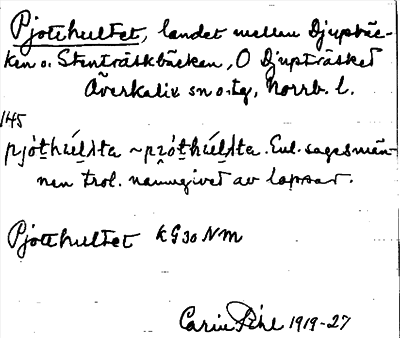 Pjottkultet, landet mellan Djupbäc-
ken o. Stenträskbäcken, O Djupträsket
Överkalix sn o. tg, Norrb. l.
145
Enl. sagesmän-
nen trol. namngivet av lappar.
Pjottkultet KG30NM
Carin Pihl 1919-27